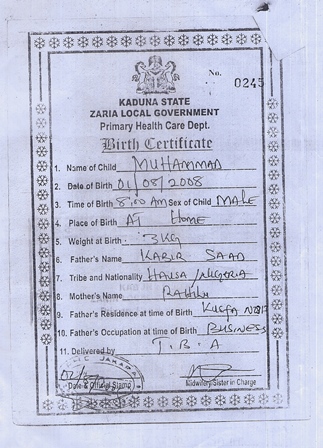 No. 0245
KADUNA STATE
ZARIA LOCAL GOVERNMENT
Primary Health Care Dept.
Birth Certificate
1. Name of Child MUHAMMAD
2. Date of Birth 01/08/2008
3. Time of Birth 8:00 AM Sex of Child MALE
4. Place of Birth AT HOME
5. Weight at Birth 3KG
6. Father's Name KABIR SAAD
7. Tribe and Nationality HAUSA/NIGERIA
8. Mother's Name
9. Father's Residence at time of Birth KUSFA
10. Father's Occupation at time of Birth BUSINESS
11. Delivered by T.B.A
Date & Official Stamp
Midwifery Sister in Charge